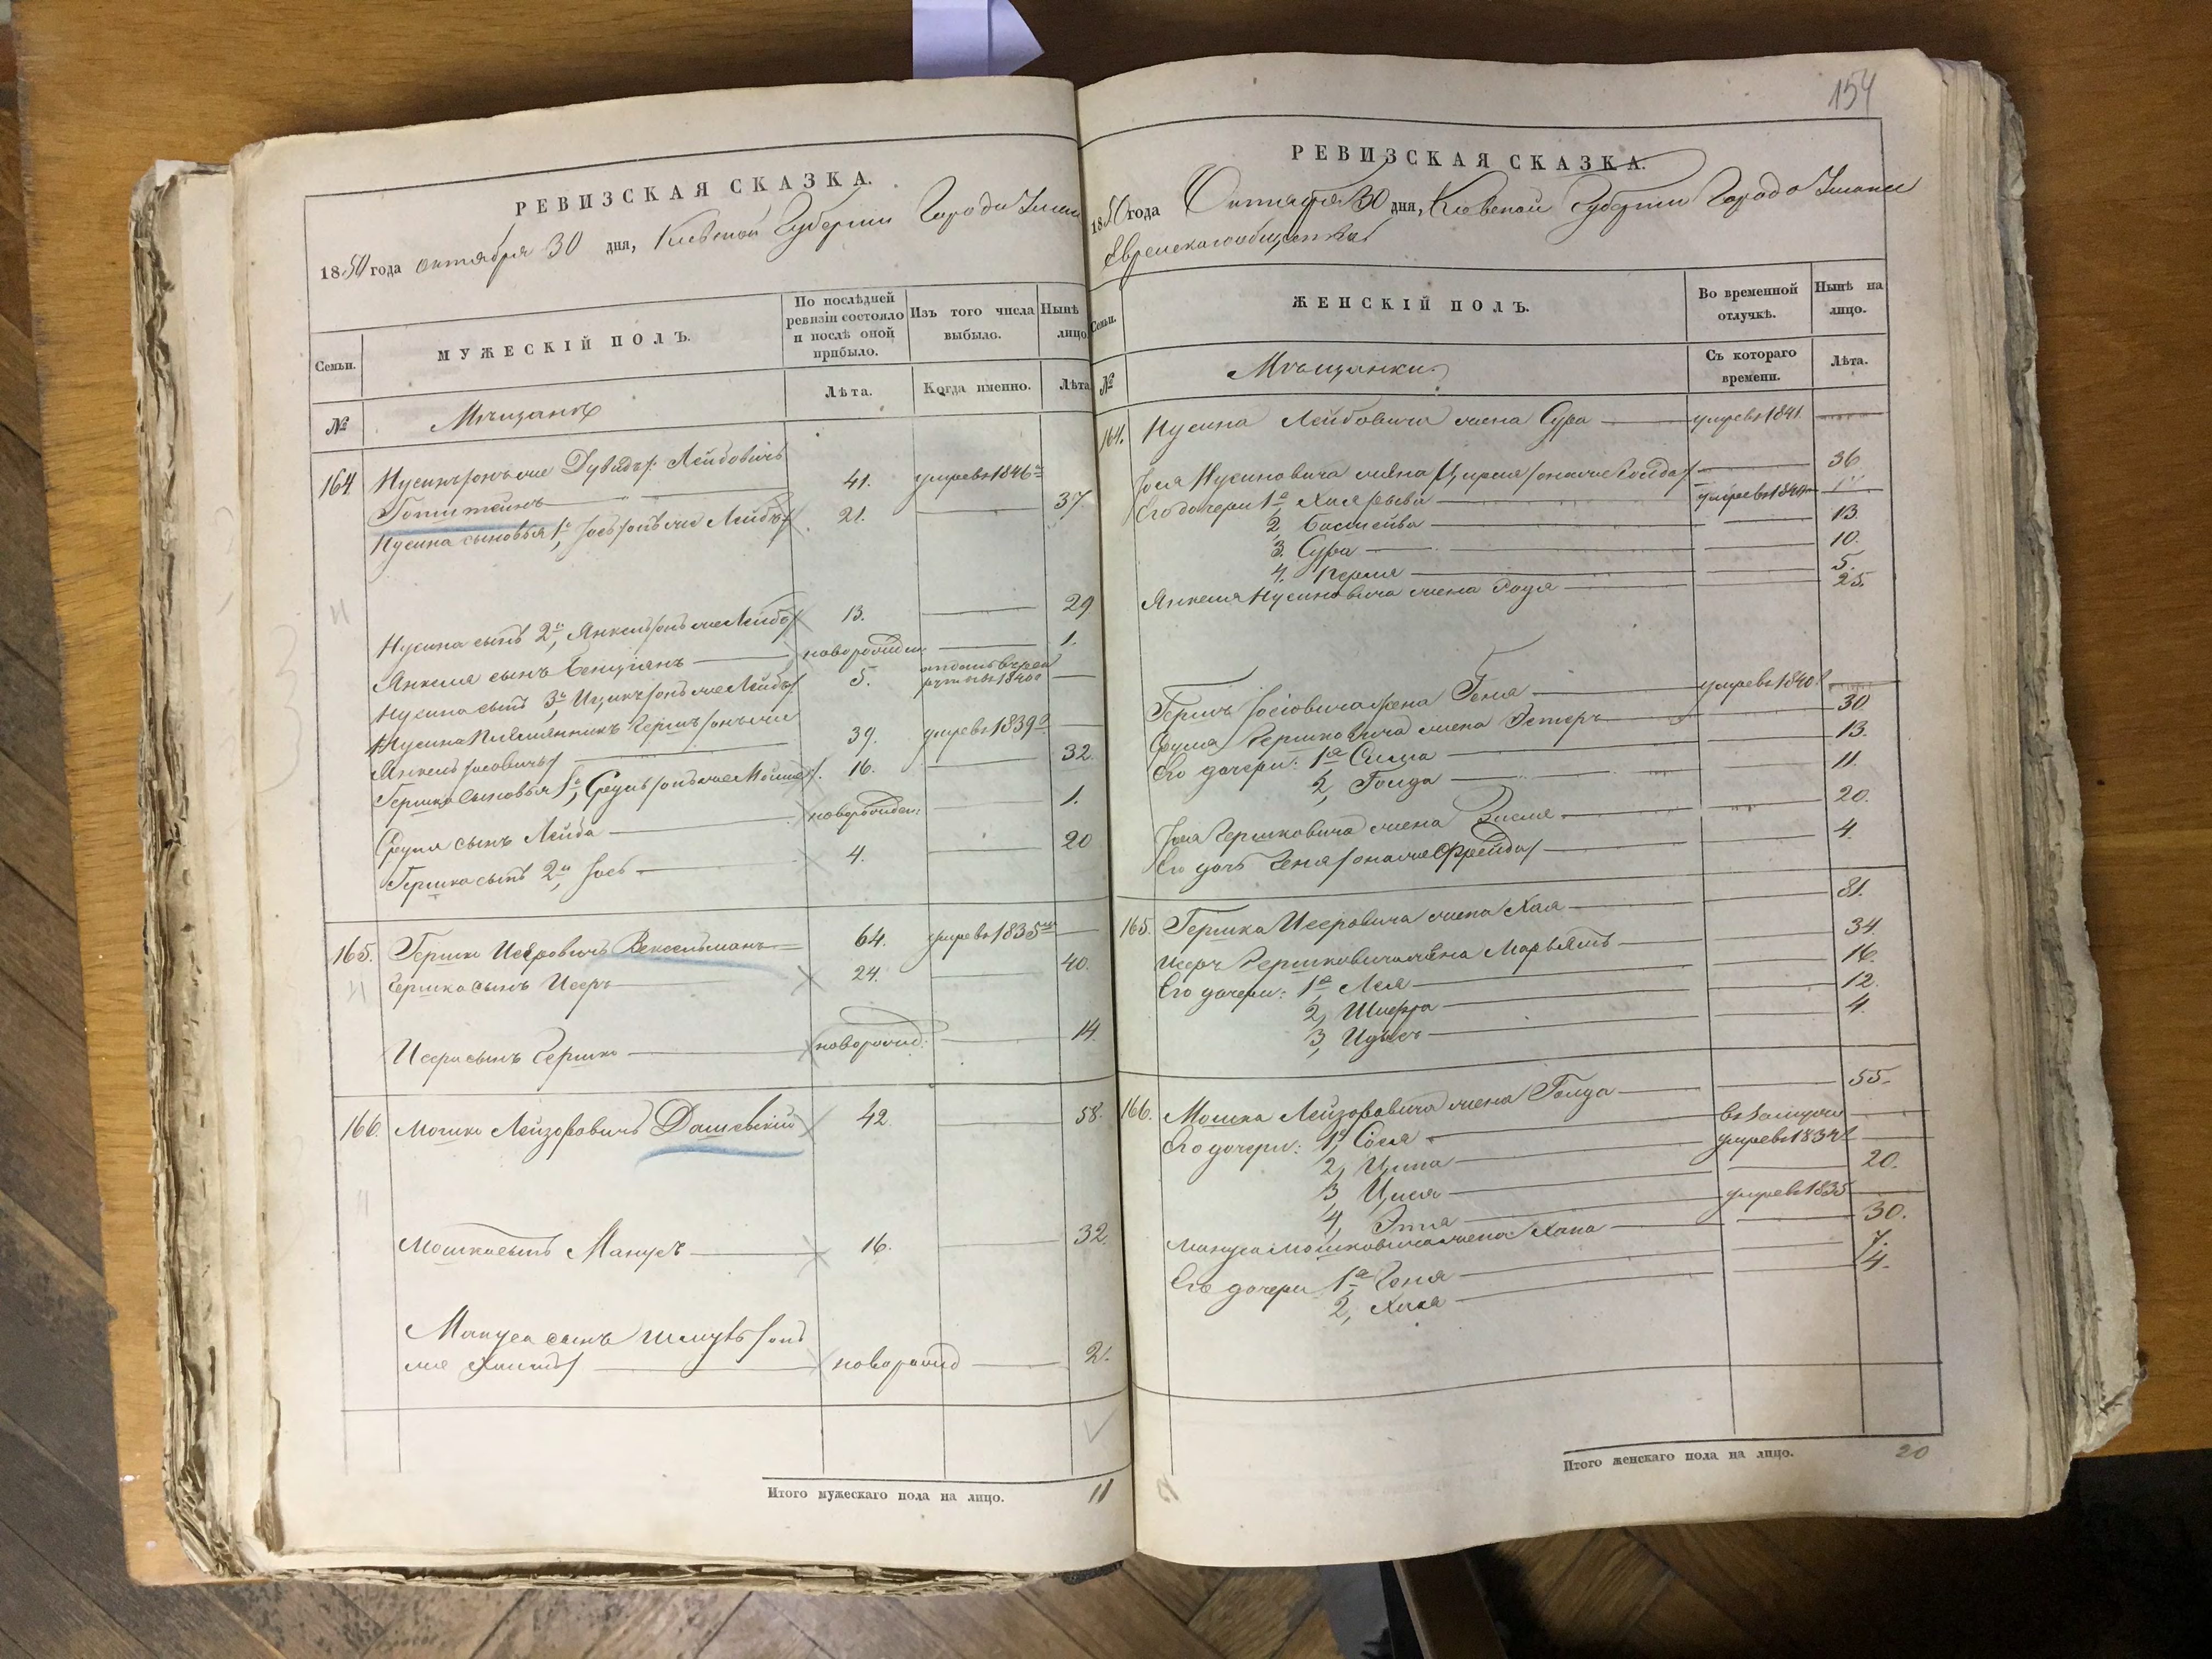 РЕВИЗСКАЯ СКАЗКА.
1850 года октября 30 дня, Киевской Губернии Города Умани
Семьи.
МУЖЕСКІЙ ПОЛЪ.
По послѣдней ревизіи состояло и послѣ оной прибыло.
Изъ того числа выбыло.
Нынѣ лицо
№
Мѣщане
Лѣта.
Когда именно.
Лѣта
164 Нусинъ /онъ же Дувидъ/ Лейбовичъ
Готштейнъ 41. умре въ 1846 г
Нусина сыновья 1й, Іосъ /онъ же Лейбъ/ 21. 37
Нусина сынъ 2й, Янкель /онъ же Лейба/ 13. 29
Янкеля сынъ Бенціанъ новорожден. 1.
Нусина сынъ 3й, Ицикъ /онъ же Лейбъ/ 5. отданъ въ рекруты въ 1840
Нусина племянникъ Гершъ /онъ же
Янкель Іосіовичъ/ 39. умре въ 1839 г
Гершка сыновья 1й, Сруль /онъ же Мошка/ 16. 32.
Сруля сынъ Лейба новорожден: 1.
Гершка сынъ 2й, Іось 4. 20
165. Гершко Исеровичъ Вексельманъ 64. умре въ 1835 г
Гершка сынъ Исеръ 24. 40.
Исера сынъ Гершко новорожд: 14.
166. Мошко Лейзоровичъ Дашевскій 42. 58.
Мошка сынъ Манусъ 16. 32.
Мануса сынъ Шмуль /онъ
же / новорожд 2.
Итого мужескаго пола на лицо. 11
154
РЕВИЗСКАЯ СКАЗКА.
1850 года Октября 30 дня, Киевской Губернии Города Умани
Еврейскаго общества
Семьи.
ЖЕНСКІЙ ПОЛЪ.
Во временной отлучкѣ.
Нынѣ на лицо.
№
Мѣщанки
Съ котораго времени.
Лѣта.
164. Нусина Лейбовича жена Сура умре въ 1841.
Іося Нусиновича жена Ципра /она же Голда/ 36
Его дочери 1я, Хая Рыва умре въ 1840
2, Басшейва 13.
3. Сура 10.
4. Перля 5.
Янкеля Нусиновича жена Рахля 25.
Гершъ Іосіовича жена Геня умре въ 1840 г
Сруля Гершковича жена Эстеръ 30
Его дочери: 1я 13.
2, Голда 11.
Іося Гершковича жена Зисля 20.
Его дочь Геня /она же Фрейда/ 4.
165. Гершка Исеровича жена Хая 81.
Исеръ Гершковича жена Марьямъ 34.
Его дочери: 1я Лея 16.
2, Шифра 12.
3, Идысъ 4.
166. Мошка Лейзоровича жена Голда 55.
Его дочери: 1я Сося в замуж.
2, Ципа умре въ 1834 г
3, Цися 20.
4, Этля умре въ 1835
Мануса Мошковича жена Хана 30.
Его дочери 1я Геня 7.
2, Хася 4.
Итого женскаго пола на лицо. 20